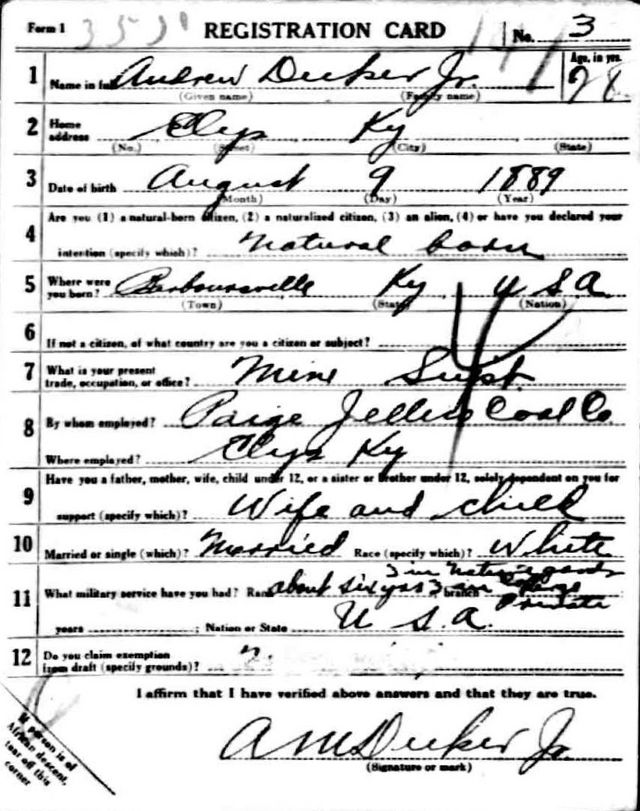 Form 1 REGISTRATION CARD No. 3
1 Name in full Andrew Decker Jr. Age, in yrs. 28
(Given name) (Family name)
2 Home address Elys Ky
(No.) (Street) (City) (State)
3 Date of birth August 9 1889
(Month) (Day) (Year)
4 Are you (1) a natural-born citizen, (2) a naturalized citizen, (3) an alien, (4) or have you declared your
intention (specify which)? Natural born
5 Where were you born? Barboursville Ky U S A
(Town) (State) (Nation)
6 If not a citizen, of what country are you a citizen or subject?
7 What is your present trade, occupation, or office? Mine Supt.
8 By whom employed? Paige Jellico Coal Co.
Where employed? Elys Ky
9 Have you a father, mother, wife, child under 12, or a sister or brother under 12, solely dependent on you for
support (specify which)? Wife and child
10 Married or single (which)? Married Race (specify which)? White
3 in
11 What military service have you had? Rank about six yrs 3 in branch Private
years ; Nation or State U S A.
12 Do you claim exemption from draft (specify grounds)?
I affirm that I have verified above answers and that they are true.
A M Decker Jr.
(Signature or mark)
If person is of
African descent,
tear off this
corner